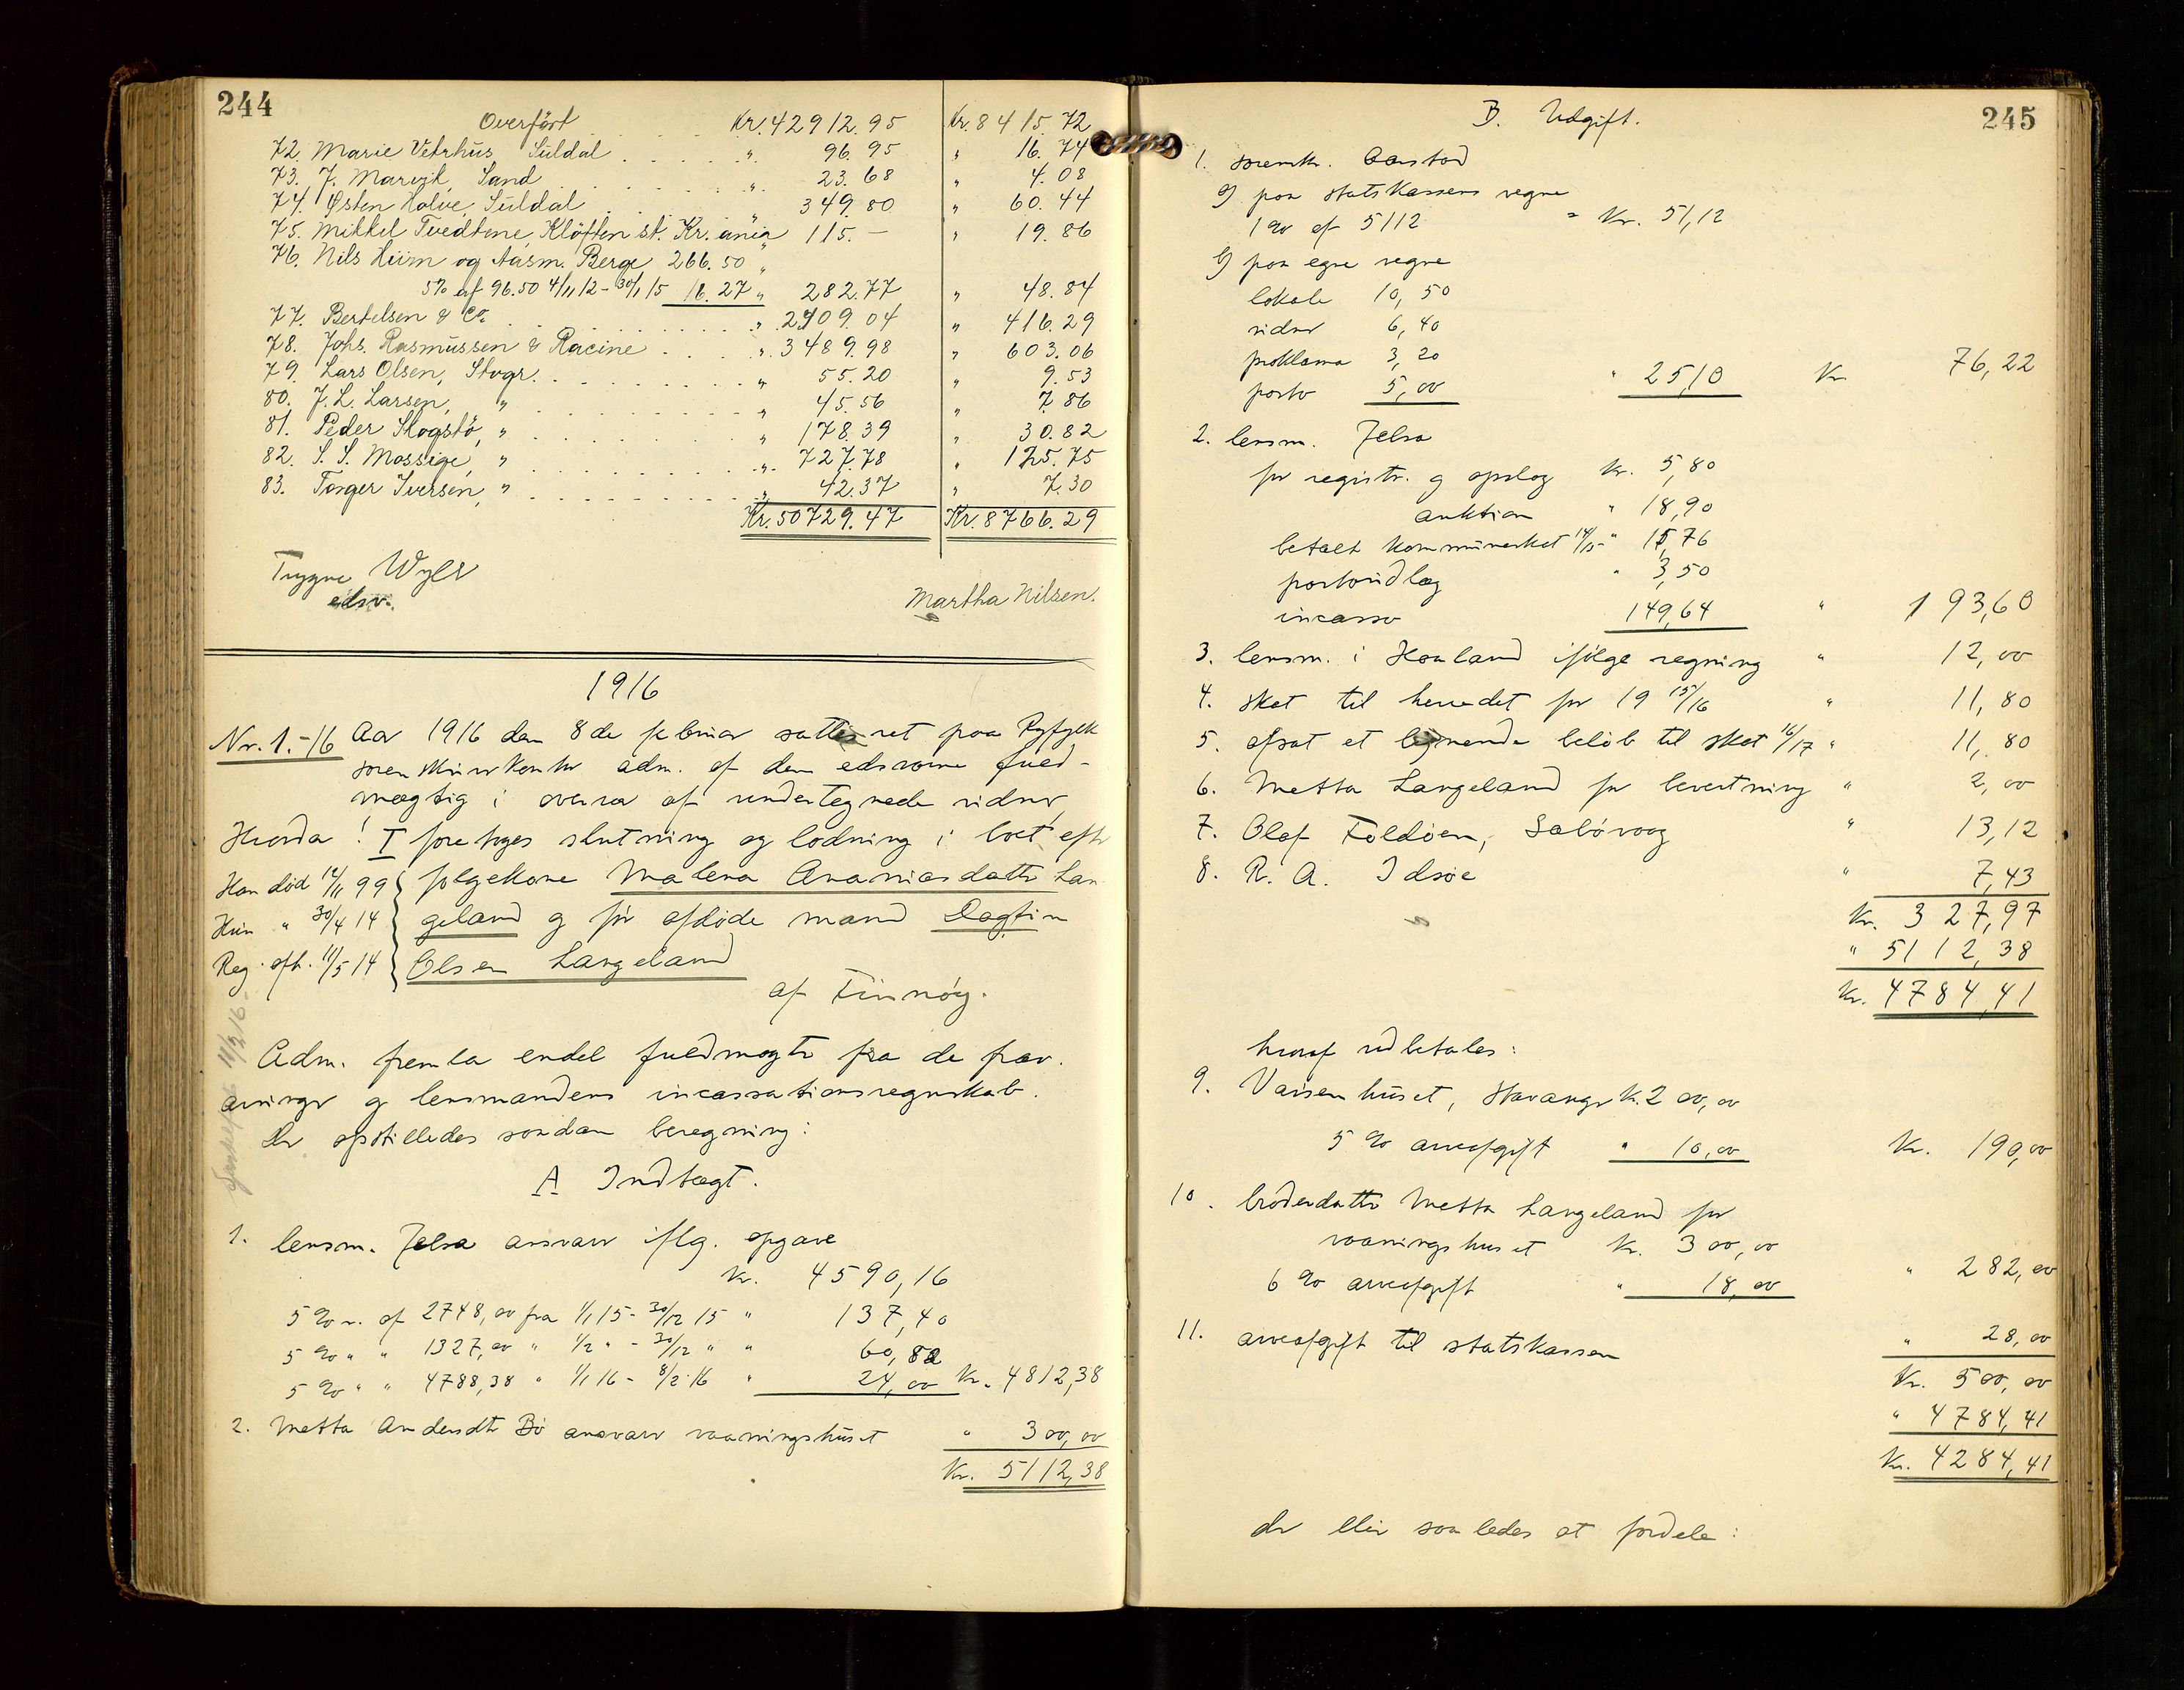 244
Overført Kr. 42912.95 Kr. 8415.72
72. Marie Vetrhus, Suldal " 96.95 " 16.74
73. J. Marvik, Sand " 23.68 " 4.08
74. Østen Halve, Suldal " 349.80 " 60.44
75. Mikkel Tvedtene, Kløften st. Kr.ania 115.- " 19.86
76. Nils Hiim og Aasm. Berge 266.50
5% af 96.50 4/11 12 - 30/1 15 16.27 " 282.77 " 48.84
77. Bertelsen & Co. " 2409.04 " 416.29
78. Johs. Rasmussen & Racine " 3489.98 " 603.06
79. Lars Olsen, Stvgr. " 55.20 " 9.53
80. J. L. Larsen, " " 45.56 " 7.86
81. Peder Skogstø, " " 178.39 " 30.82
82. S. S. Mossige, " " 727.78 " 125.75
83. Torger Iversen, " " 42.37 " 7.30
Kr. 50729.47 Kr. 8766.29
Trygve Wyler
edsv.
Martha Nilsen.
1916
Nr. 1.-16 Aar 1916 den 8de februar sattes ret paa Ryfylke
sorenskriverkontor adm. af den edsvorne fuld-
mægtig i overvær af undertegnede vidner
Hvorda! I foretoges slutning og lodning i boet efter
Han død 14/11 99 folgekone Malena Ananiasdatter Lan
Hun " 30/4 14 geland og før afdøde mand Dagfin
Reg. efh. 11/5 14 Olsen Langeland
af Finnøy.
11/2 16
Adm. fremla endel fuldmagter fra de frav.
arvinger og lensmandens incassationsregnskab.
Der opstilledes saadan beregning:
A Indtægt.
1. lensm. Jelsa ansvarer iflg. opgave
Kr. 4590,16
5 % r. af 2748,00 fra 1/1 15 - 30/12 15 " 137,40
5 % " " 1327,00 " 1/2 " - 30/12 " " 60,82
5 % " " 4788,38 " 1/1 16 - 8/2 16 " 24,00 Kr. 4812,38
2. Metta Andersdtr Bø ansvarer vaaningshuset " 300,00
Kr. 5112,38
245
B. Udgift.
1. sorenskr. Aarstad
a) paa statskassens regne
1 % af 5112 = Kr. 51,12
b) paa egne regne
lokale 10,50
vidner 6,40
proklama 3,20
porto 5,00 " 25,10 Kr 76,22
2. lensm. Jelsa
for registr. og opslag Kr. 5,80
auktion " 18,90
betalt kommuneskat 14/15 " 15,76
portoudlæg " 3,50
incasso 149,64 " 193,60
3. lensm. i Hauland ifølge regning " 12,00
4. skat til herredet for 19 15/16 " 11,80
5. afsat et lignende beløb til skat 16/17 " 11,80
6. Metta Langeland for bevertning " 2,00
7. Olaf Foldøen, Salövaag " 13,12
8. R. A. Idsøe " 7,43
Kr. 327,97
" 5112,38
Kr. 4784,41
hvoraf udbetales:
9. Vaisenhuset, Stavanger K. 200,00
5 % arveafgift " 10,00 Kr. 190,00
10. broderdatter Metta Langeland for
vaaningshuset Kr. 300,00
6 % arveafgift " 18,00 " 282,00
11. arveafgift til statskassen " 28,00
Kr. 500,00
" 4784,41
Kr. 4284,41
der blir saaledes at fordele: